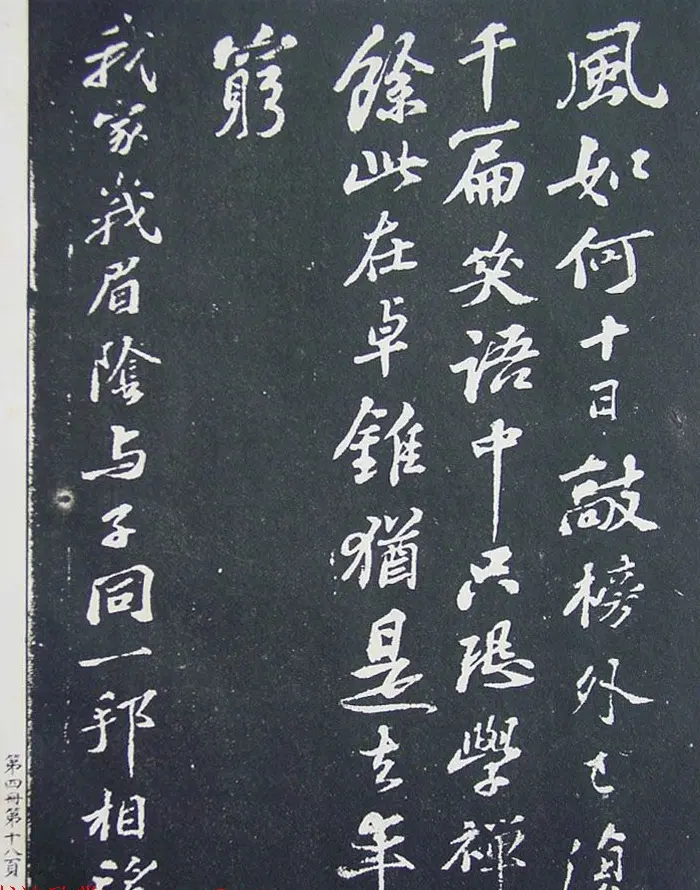 風如何十日敲榜外
千篇笑語中只恐學禪
餘此在卓錐猶是去年
窮
我家峩眉陰与子同一邦相
第四冊第十八頁